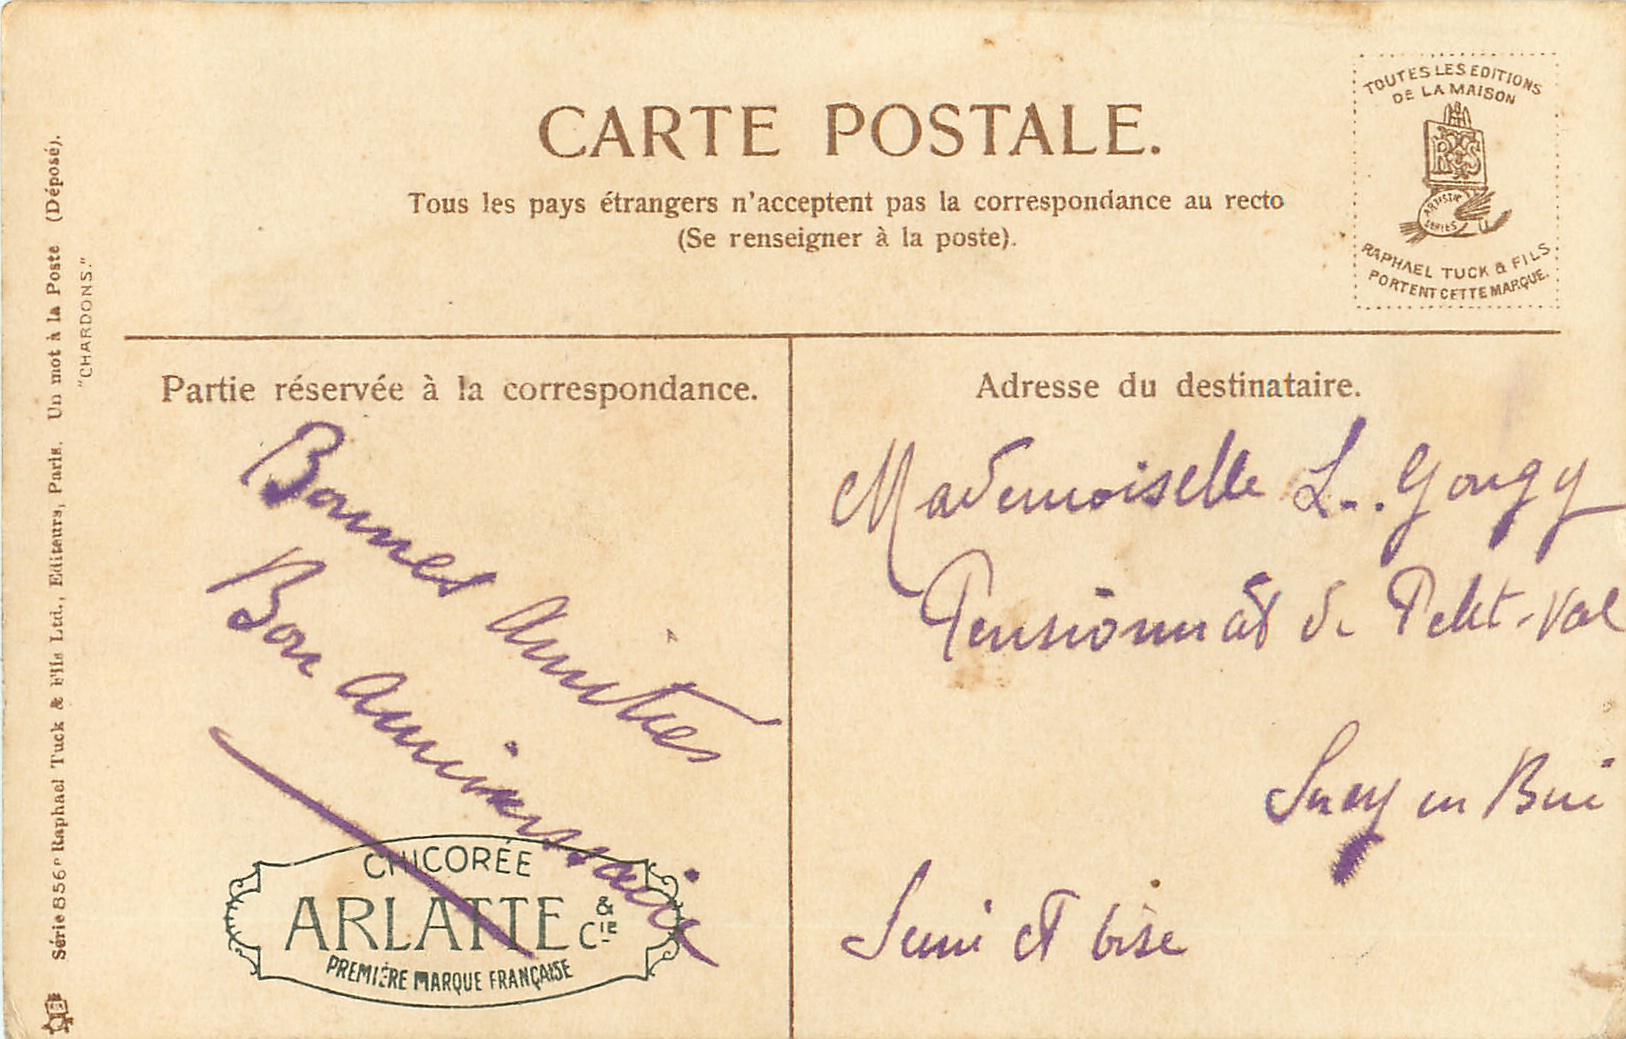 CARTE POSTALE.
Tous les pays étrangers n'acceptent pas la correspondance au recto
(Se renseigner à la poste).
TOUTES LES EDITIONS
DE LA MAISON
R T S
ARTISTIC
SERIES
RAPHAEL TUCK & FILS
PORTENT CETTE MARQUE.
Série 856 Raphael Tuck & Fils Ltd., Editeurs, Paris. Un mot à la Poste (Déposé).
"CHARDONS."
Partie réservée à la correspondance.
Bonnes Amitiés
Bon Anniversaire
CHICORÉE
ARLATTE & Cie
PREMIÈRE MARQUE FRANÇAISE
Adresse du destinataire.
Mademoiselle L. Gougy
Pensionnat de Petit-Val
Sucy en Brie
Seine et Oise